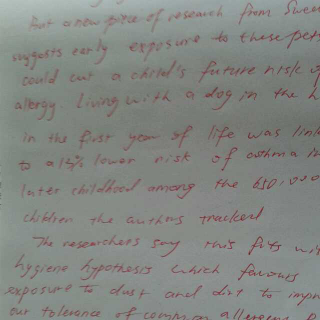 But a new piece of research from Swe
suggests early exposure to these pets
could cut a child's future risk of
allergy. Living with a dog in the h
in the first year of life was link
to a 15% lower risk of asthma in
later childhood among the 650,000
children the authors tracked
The researchers say this fits wi
hygiene hypothesis which favours
exposure to dust and dirt to impr
our tolerance of common allergens